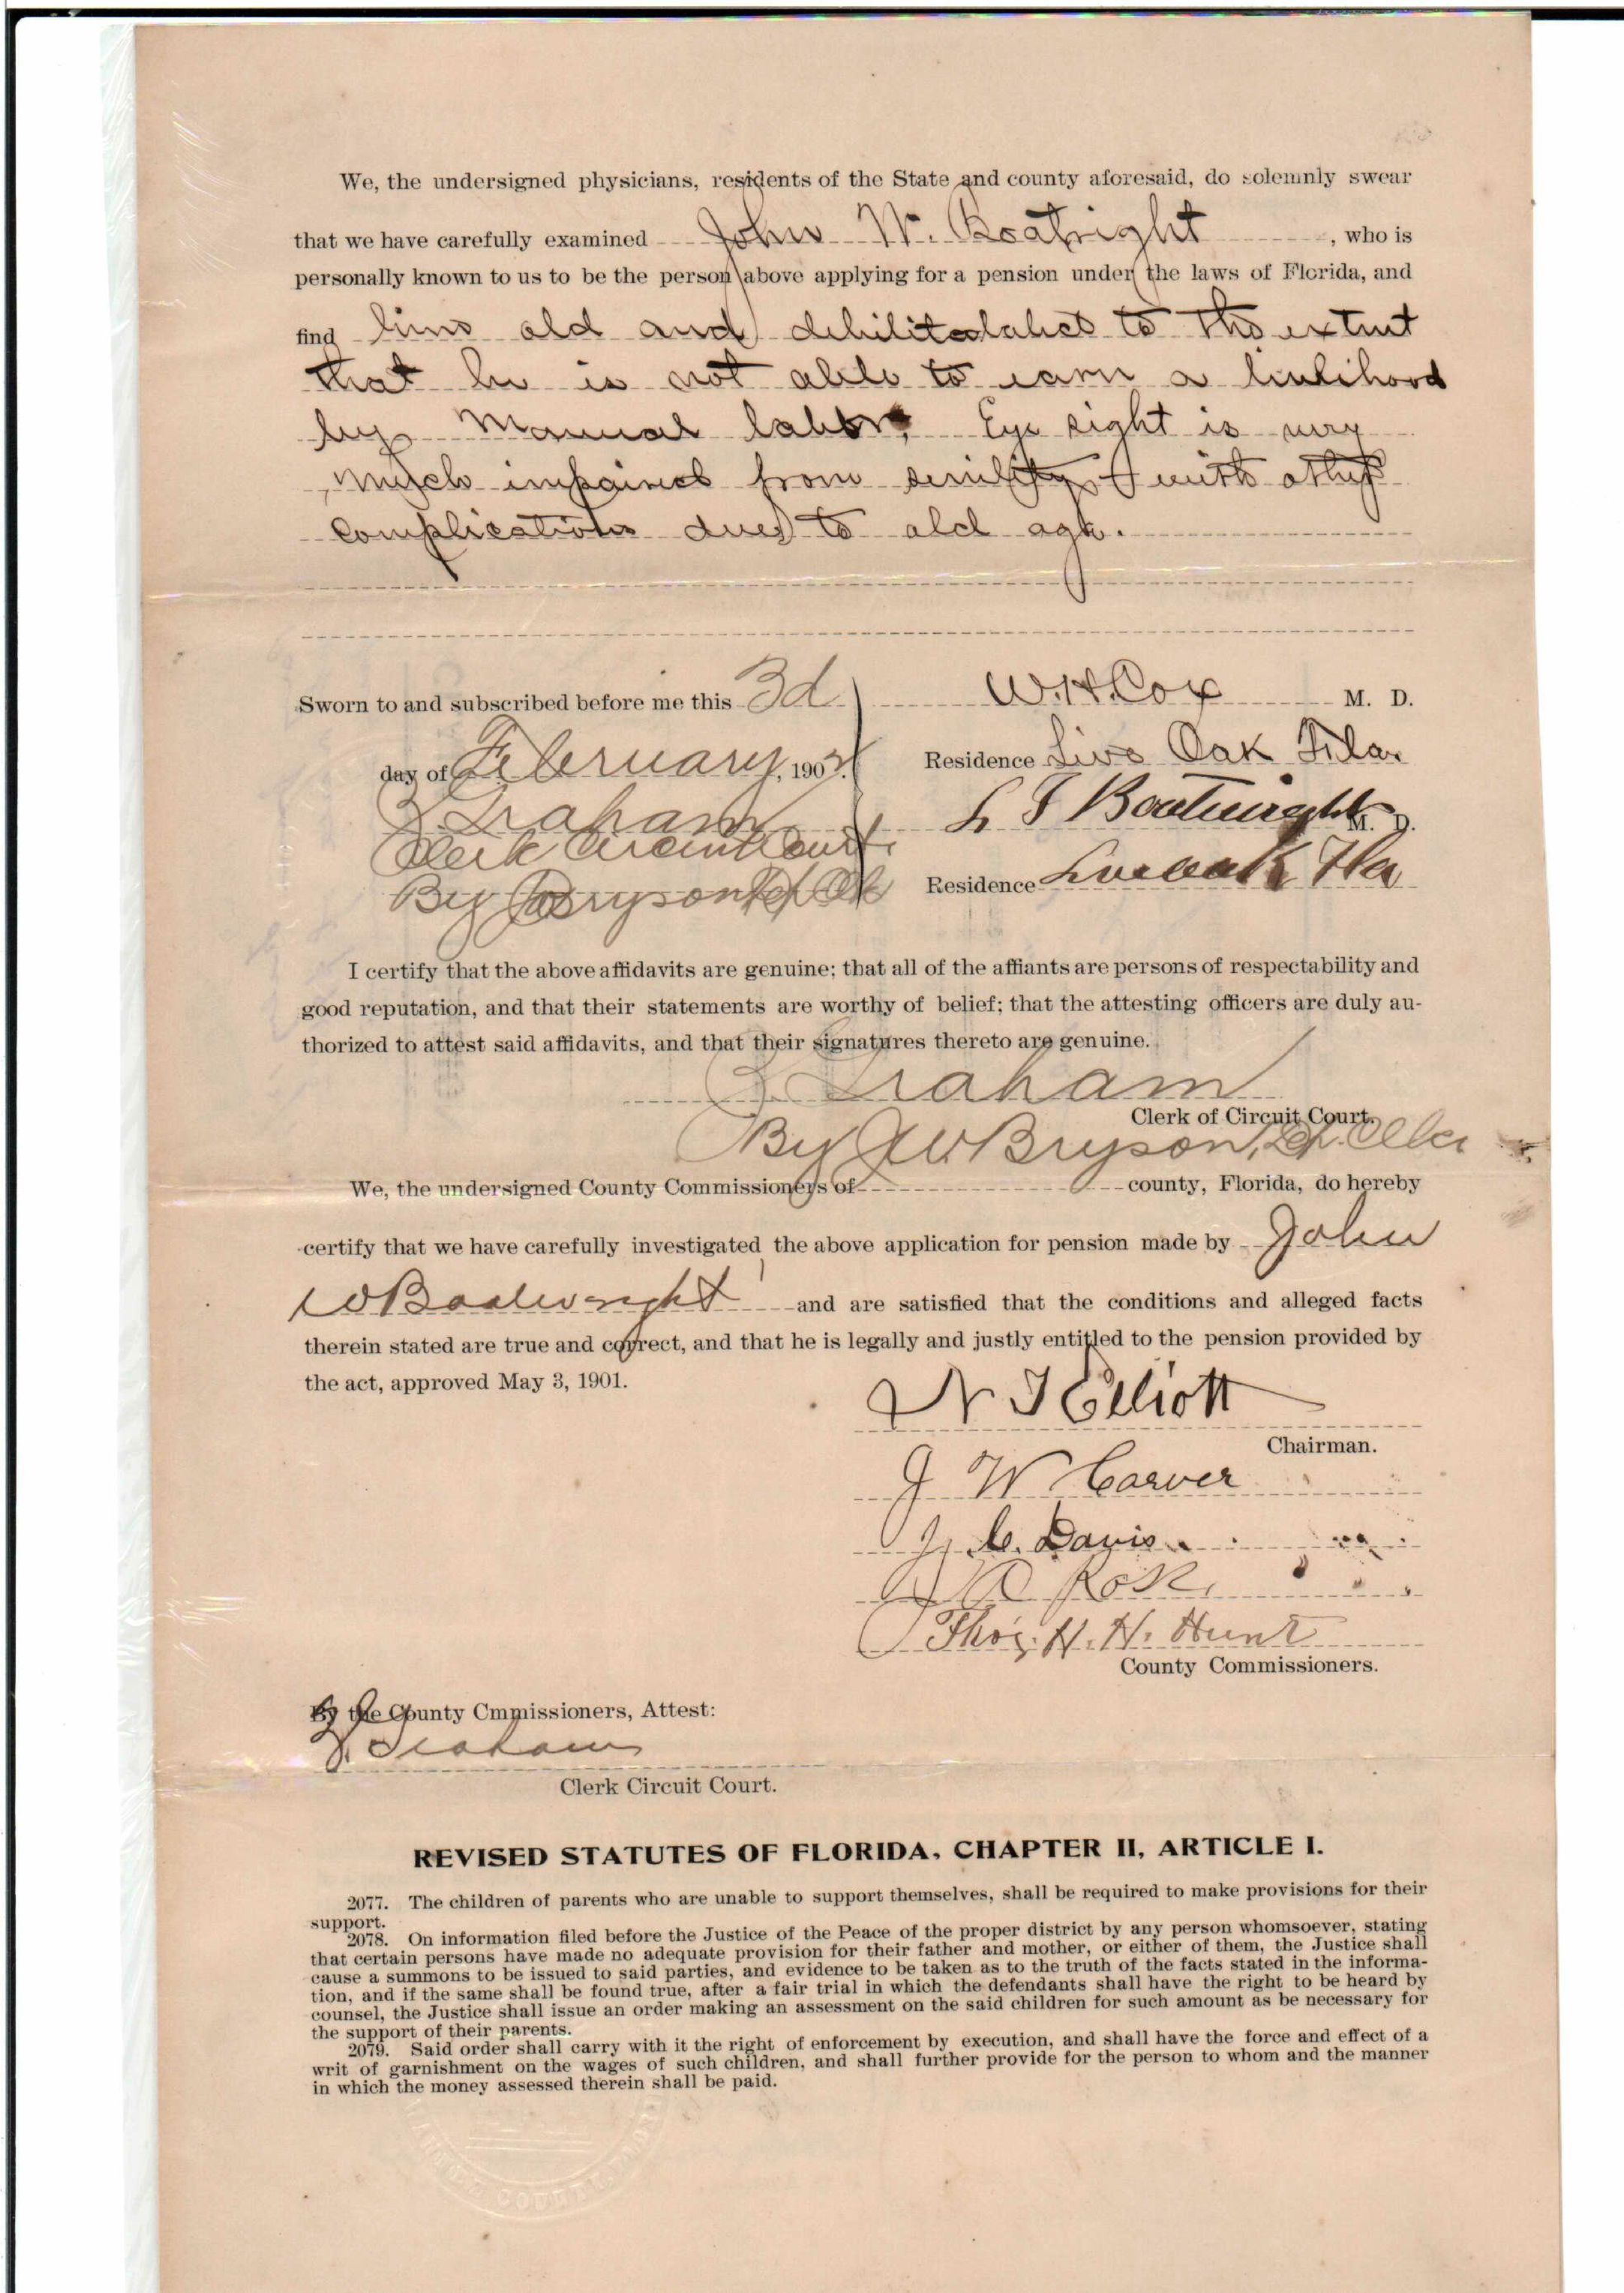 We, the undersigned physicians, residents of the State and county aforesaid, do solemnly swear
that we have carefully examined John W. Boatright, who is
personally known to us to be the person above applying for a pension under the laws of Florida, and
find him old and to the extent
that he is not able to earn a livlihood
by Manual labor, Eye sight is very
much impaired from senility & with other
complications due to old age.
Sworn to and subscribed before me this 3d
day of February, 190
Graham
Clerk Circuit Court
By Bryson
W. H. Cox M. D.
Residence Live Oak Fla.
L F Boatwright M. D.
Residence Live oak Fla
I certify that the above affidavits are genuine; that all of the affiants are persons of respectability and
good reputation, and that their statements are worthy of belief; that the attesting officers are duly au-
thorized to attest said affidavits, and that their signatures thereto are genuine.
Graham
Clerk of Circuit Court.
By J W Bryson,
We, the undersigned County Commissioners of county, Florida, do hereby
certify that we have carefully investigated the above application for pension made by John
W Boatwright and are satisfied that the conditions and alleged facts
therein stated are true and correct, and that he is legally and justly entitled to the pension provided by
the act, approved May 3, 1901.
N J Elliott
Chairman.
J W Carver
J. C. Davis
Thos. H. H. Hunt
County Commissioners.
By the County Cmmissioners, Attest:
Graham
Clerk Circuit Court.
REVISED STATUTES OF FLORIDA, CHAPTER II, ARTICLE I.
2077. The children of parents who are unable to support themselves, shall be required to make provisions for their
support.
2078. On information filed before the Justice of the Peace of the proper district by any person whomsoever, stating
that certain persons have made no adequate provision for their father and mother, or either of them, the Justice shall
cause a summons to be issued to said parties, and evidence to be taken as to the truth of the facts stated in the informa-
tion, and if the same shall be found true, after a fair trial in which the defendants shall have the right to be heard by
counsel, the Justice shall issue an order making an assessment on the said children for such amount as be necessary for
the support of their parents.
2079. Said order shall carry with it the right of enforcement by execution, and shall have the force and effect of a
writ of garnishment on the wages of such children, and shall further provide for the person to whom and the manner
in which the money assessed therein shall be paid.